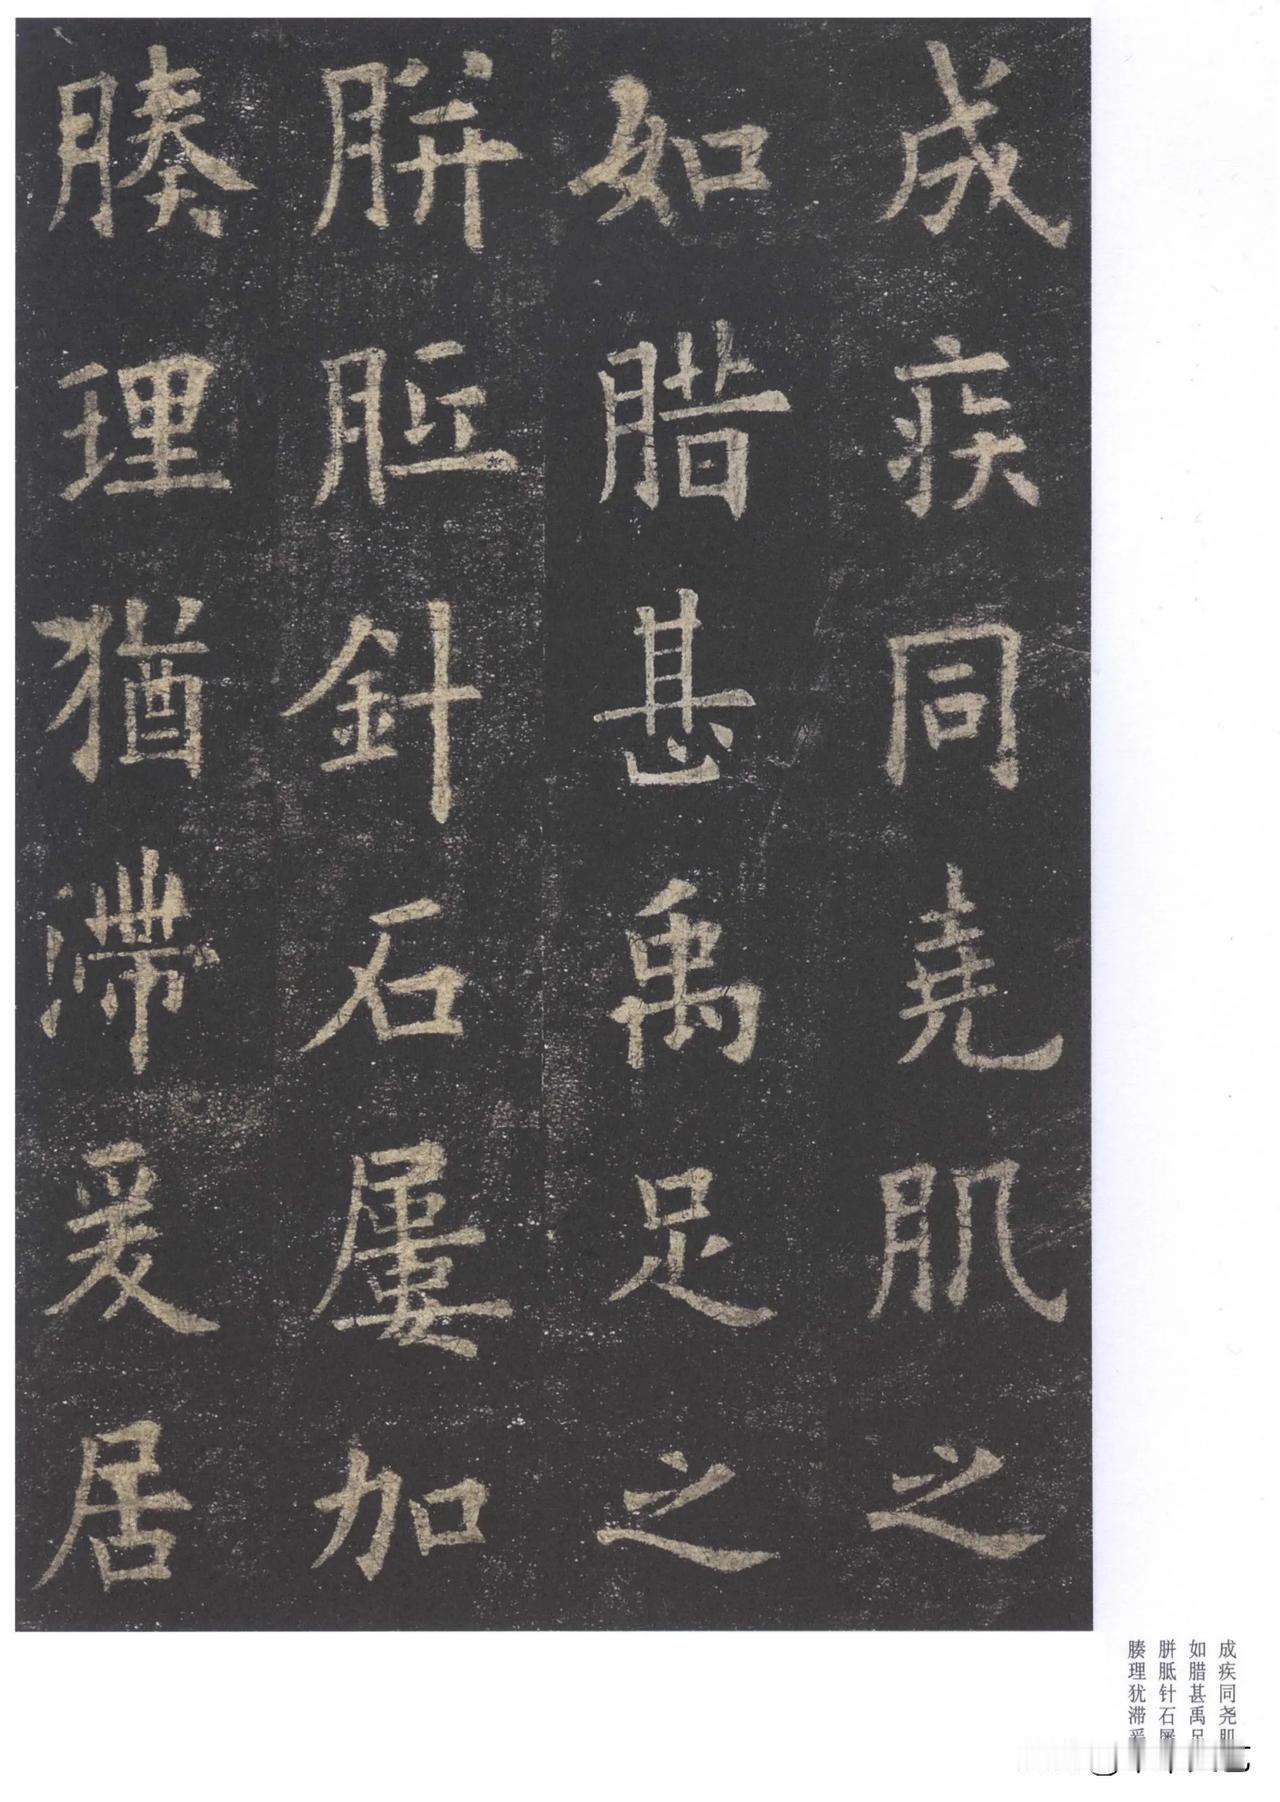 成疾同堯肌之
如腊甚禹足之
胼胝針石屢加
腠理猶滯爰居
成疾同尧肌
如腊甚禹足
胼胝针石屡
腠理犹滞爰